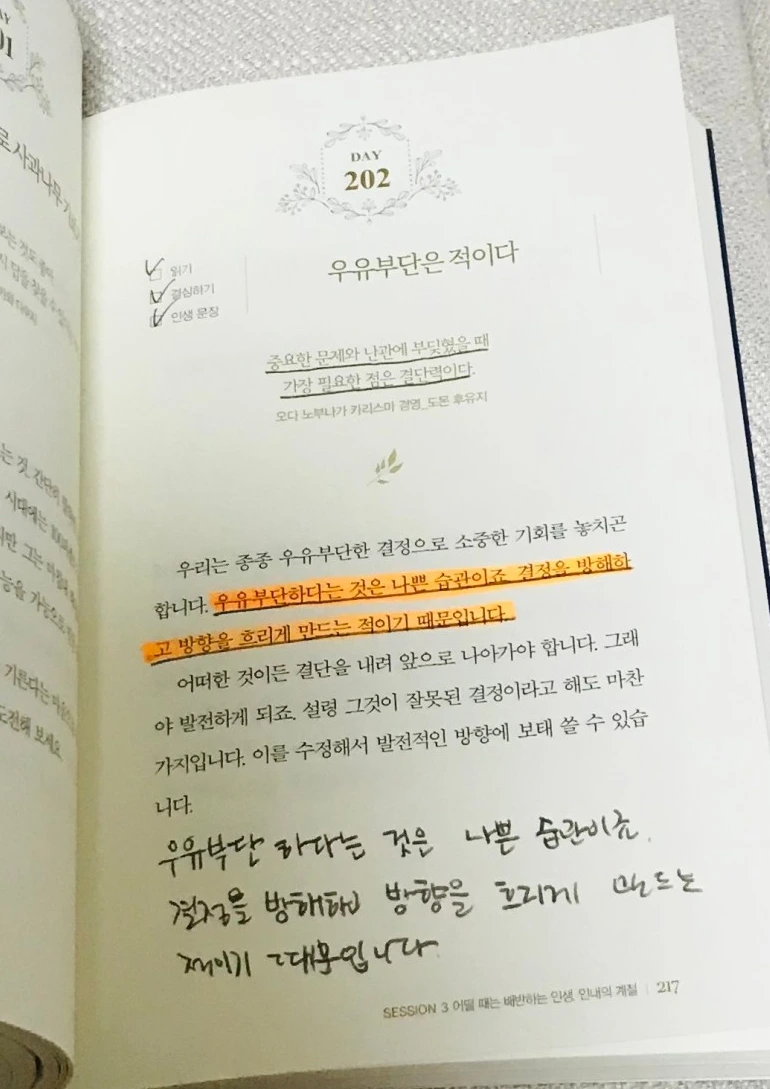 DAY
202
읽기
결심하기
인생 문장
우유부단은 적이다
중요한 문제와 난관에 부딪혔을 때
가장 필요한 점은 결단력이다.
오다 노부나가 카리스마 경영_도몬 후유지
우리는 종종 우유부단한 결정으로 소중한 기회를 놓치곤
합니다. 우유부단하다는 것은 나쁜 습관이죠. 결정을 방해하
고 방향을 흐리게 만드는 적이기 때문입니다.
어떠한 것이든 결단을 내려 앞으로 나아가야 합니다. 그래
야 발전하게 되죠. 설령 그것이 잘못된 결정이라고 해도 마찬
가지입니다. 이를 수정해서 발전적인 방향에 보태 쓸 수 있습
니다.
우유부단 하다는 것은 나쁜 습관이죠.
결정을 방해하고 방향을 흐리게 만드는
적이기 때문입니다.
SESSION 3 어떨 때는 배반하는 인생, 인내의 계절 | 217